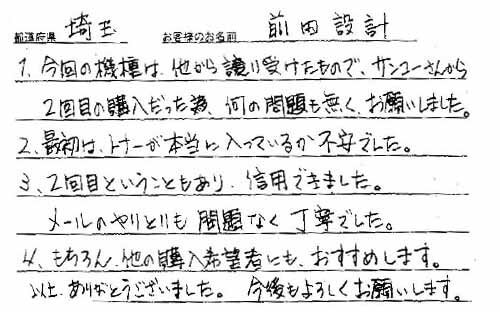 都道府県 埼玉 お客様のお名前 前田設計
1、今回の機種は、他から譲り受けたもので、サンコーさんから
2回目の購入だった為、何の問題も無く、お願いしました。
2、最初は、トナーが本当に入っているか不安でした。
3、2回目ということもあり、信用できました。
メールのやりとりも問題なく丁寧でした。
4、もちろん、他の購入希望者にも、おすすめします。
以上、ありがとうございました。 今後もよろしくお願いします。